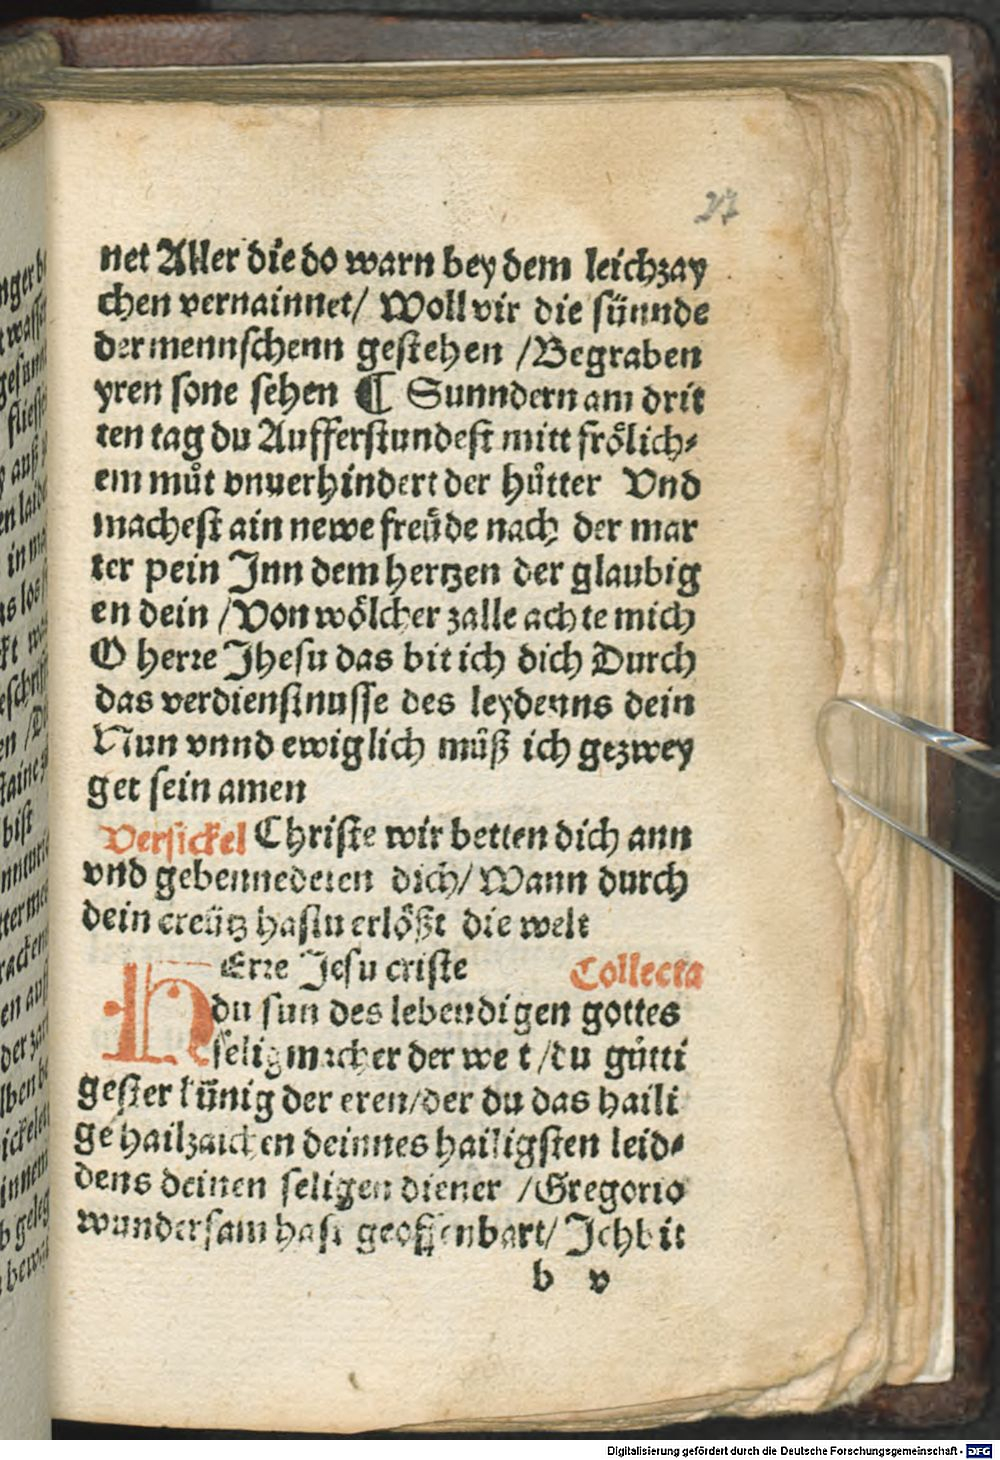 27
net Aller die do warn bey dem leichzay
chen vernainnet/ Woll vir die sünnde
der mennschenn gestehen /Begraben
yren sone sehen ¶ Sunndern am drit
ten tag du Aufferstundest mitt frölich⸗
em můt vnuerhindert der hůtter Vnd
machest ain newe freüde nach der mar
ter pein Jnn dem hertzen der glaubig
en dein /Von wölcher zalle achte mich
O herre Jhesu das bit ich dich Durch
das verdienstnusse des leydenns dein
Nun vnnd ewiglich můß ich gezwey
get sein amen
Versickel Christe wir betten dich ann
vnd gebennedeien dich/ Wann durch
dein creütz hastu erlößt die welt
HErre Jesu criste Collecta
du sun des lebendigen gottes
seligmacher der we t /du gůtti
gester künig der eren/der du das haili
ge hailzaichen deinnes hailigsten leid⸗
dens deinen seligen diener /Gregorio
wundersam hast geoffenbart/ Jch bit
b v
Digitalisierung gefördert durch die Deutsche Forschungsgemeinschaft - DFG